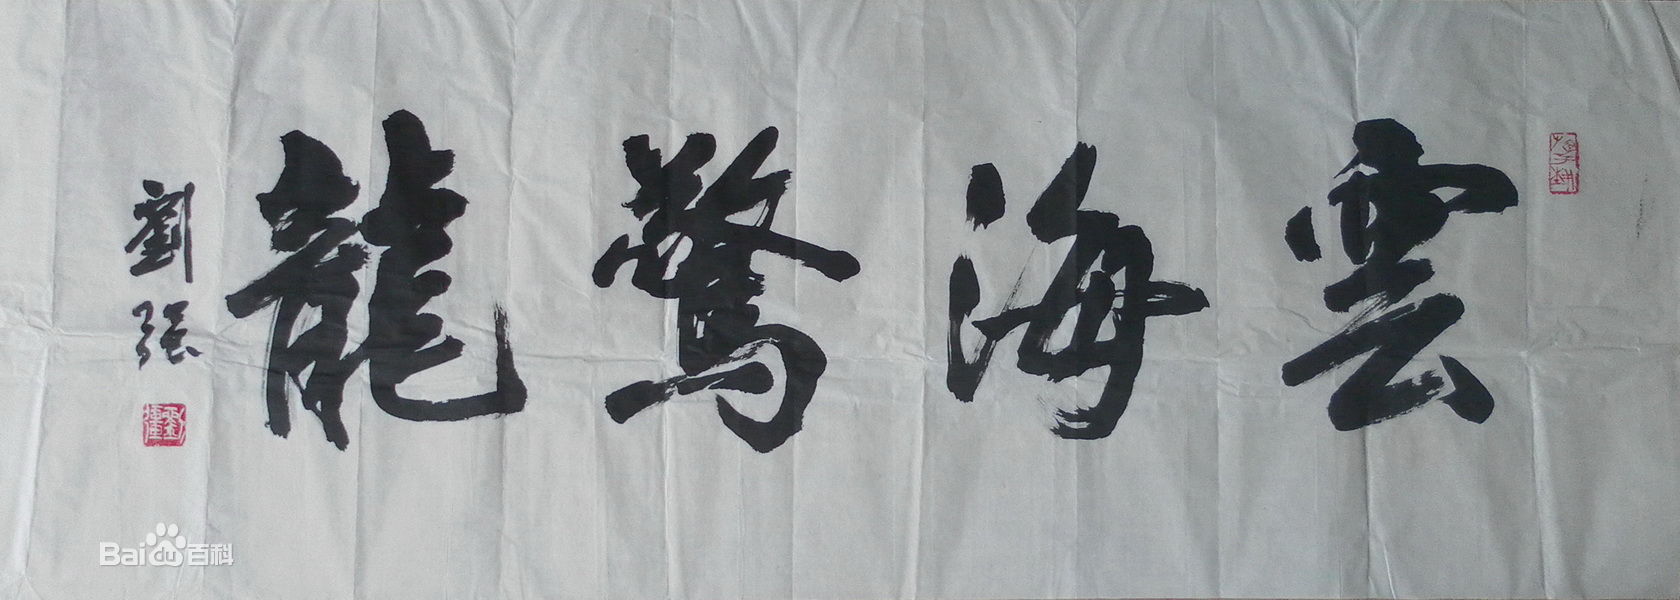 雲海驚龍
劉强
Bai du 百科